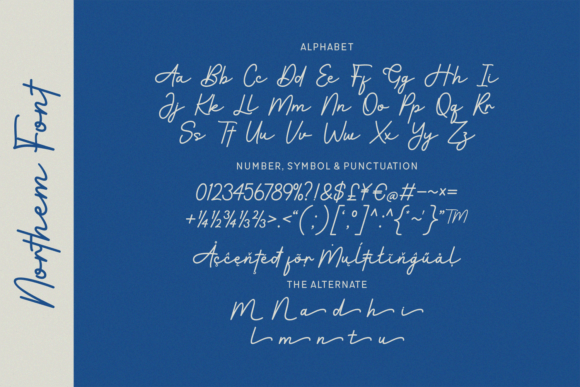 Northem Font
ALPHABET
Aa Bb Cc Dd Ee Ff Gg Hh Ii
Jj Kk Ll Mm Nn Oo Pp Qq Rr
Ss Tt Uu Vv Ww Xx Yy Zz
NUMBER, SYMBOL & PUNCTUATION
0123456789%?!&$£¥€@#-~×=
+¼½¾⅓⅔>.<“(;)[‘,°]^:^{‘~’}”TM
Àççëñtëd för Múltitïñgüãl
THE ALTERNATE
M N a d h i
L m n t u